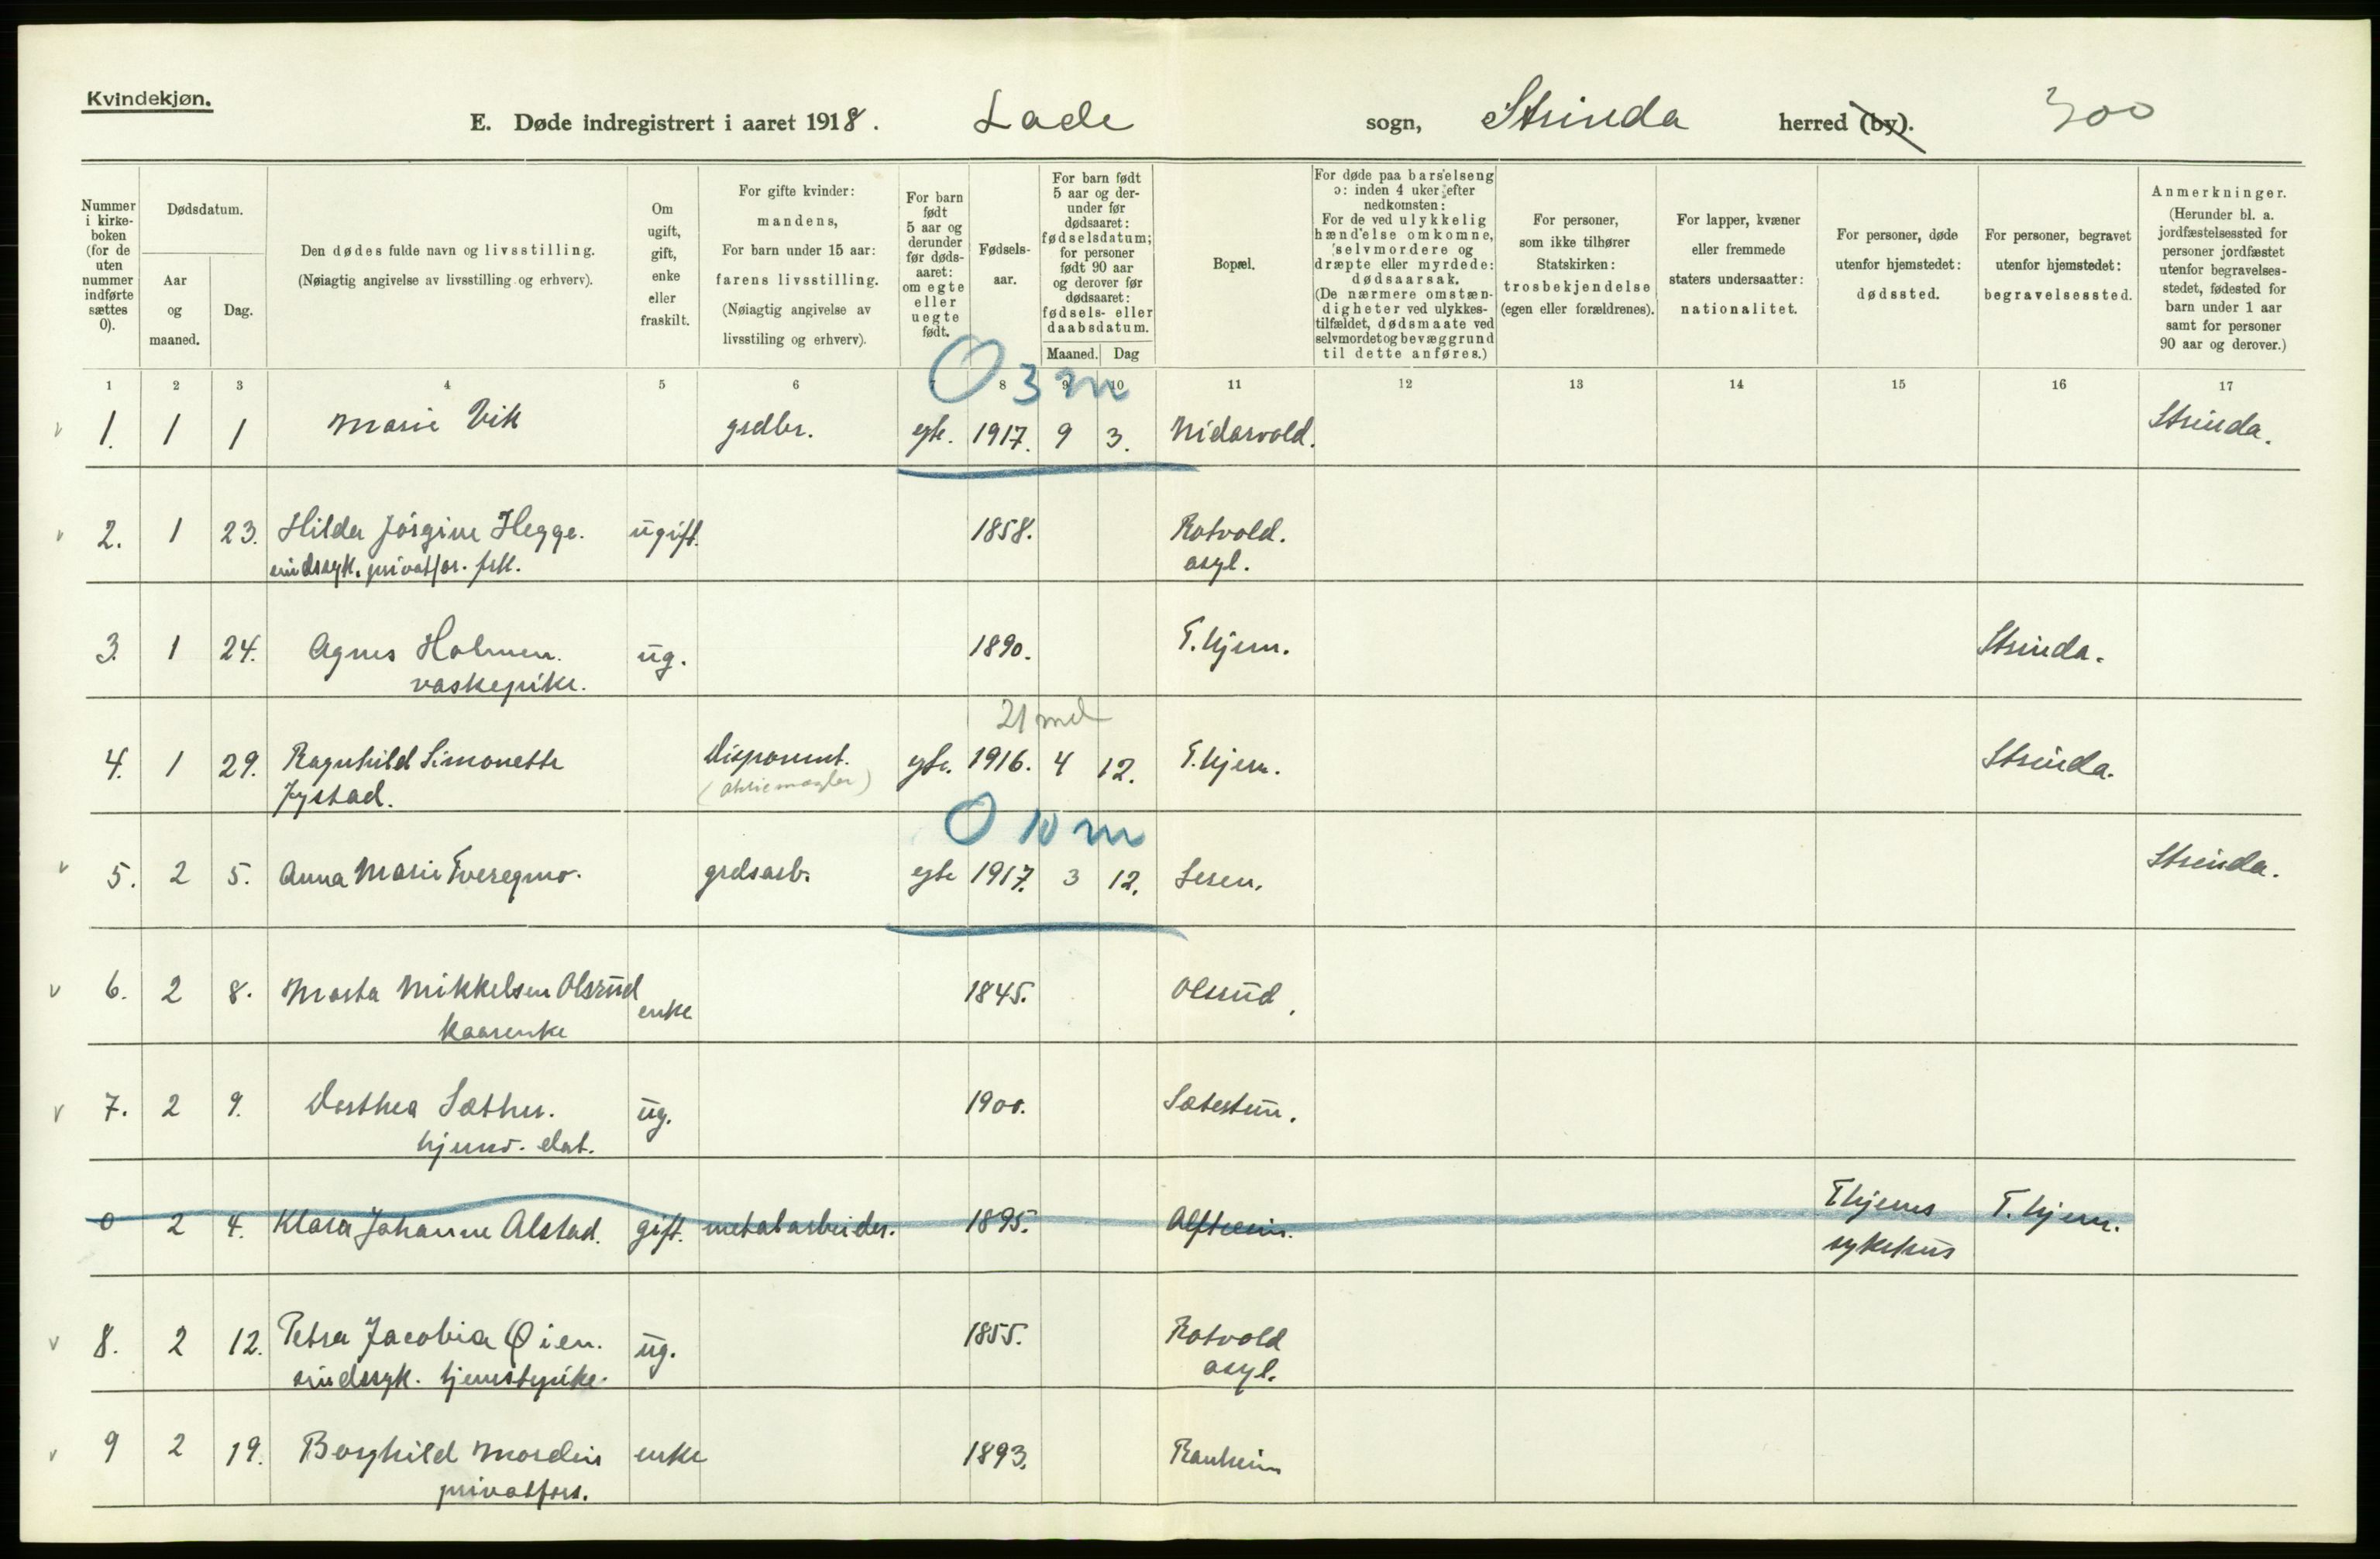 Kvindekjøn.
E. Døde indregistrert i aaret 1918. Lade sogn, Strinda herred (by). 300
Nummer i kirke-boken (for de uten nummer indførte sættes 0).
Dødsdatum.
Aar og maaned.
Dag.
Den dødes fulde navn og livsstilling.
(Nøiagtig angivelse av livsstilling og erhverv).
Om ugift, gift, enke eller fraskilt.
For gifte kvinder: mandens,
For barn under 15 aar: farens livsstilling.
(Nøiagtig angivelse av livsstiling og erhverv).
For barn født 5 aar og derunder før døds-aaret: om egte eller uegte født.
Fødsels-aar.
For barn født 5 aar og der-under før dødsaaret: fødselsdatum; for personer født 90 aar og derover før dødsaaret: fødsels- eller daabsdatum.
Maaned. Dag
Bopæl.
For døde paa barselseng ɔ: inden 4 uker efter nedkomsten:
For de ved ulykkelig hændelse omkomne, selvmordere og dræpte eller myrdede: dødsaarsak.
(De nærmere omstæn-digheter ved ulykkes-tilfældet, dødsmaate ved selvmordet og bevæggrund til dette anføres.)
For personer, som ikke tilhører Statskirken: trosbekjendelse (egen eller forældrenes).
For lapper, kvæner eller fremmede staters undersaatter: nationalitet.
For personer, døde utenfor hjemstedet: dødssted.
For personer, begravet utenfor hjemstedet: begravelsessted.
Anmerkninger.
(Herunder bl. a. jordfæstelsessted for personer jordfæstet utenfor begravelses-stedet, fødested for barn under 1 aar samt for personer 90 aar og derover.)
1 2 3 4 5 6 7 8 9 10 11 12 13 14 15 16 17
0 3 m
v 1. 1 1 Marie Vik grdbr. egte. 1917. 9 3. Nidarvold. Strinda.
v 2. 1 23. Hilda Jørgine Hegge. ugift. 1858. Rotvold.
sindssyk. privatfor. frk. asyl.
3. 1 24. Agnes Holmen. ug. 1890. T.hjem. Strinda.
vaskepike.
21 md
4. 1 29. Ragnhild Simonette Disponent. egte. 1916. 4 12. T.hjem. Strinda.
Jystad. (aktiemægler)
0 10 m
v 5. 2 5. Anna Marie Tveregmo. grdsarb. egte 1917. 3 12. Leren. Strinda.
v 6. 2 8. Marta Mikkelsen Olsrud enke 1845. Olsrud.
kaarenke
v 7. 2 9. Dorthea Sæther. ug. 1900. Sætestun.
hjemv. dat.
0 2 4. Klara Johanne Alstad. gift. metalarbeider. 1895. Thjems T.hjem.
sykehus
v 8. 2 12. Petra Jacobia Øien. ug. 1855. Rotvold
sindssyk. tjenestepike. asyl.
v 9 2 19. Borghild Mordin enke 1893. Ranheim
privatfors.